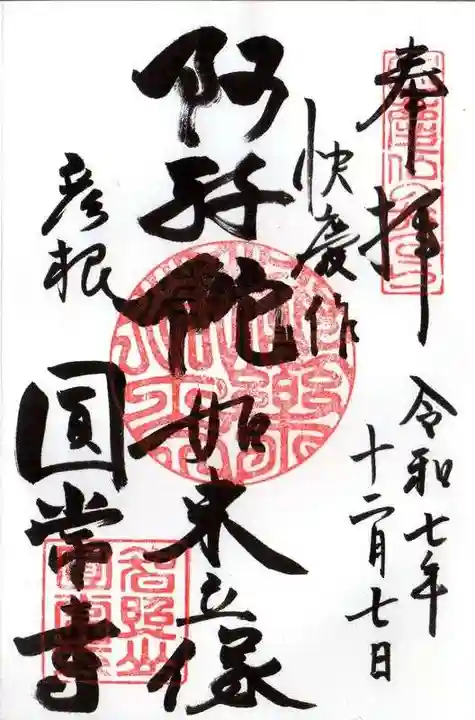 奉拝
令和七年
十二月七日
快慶作
阿弥陀如来立像
彦根
圓常寺